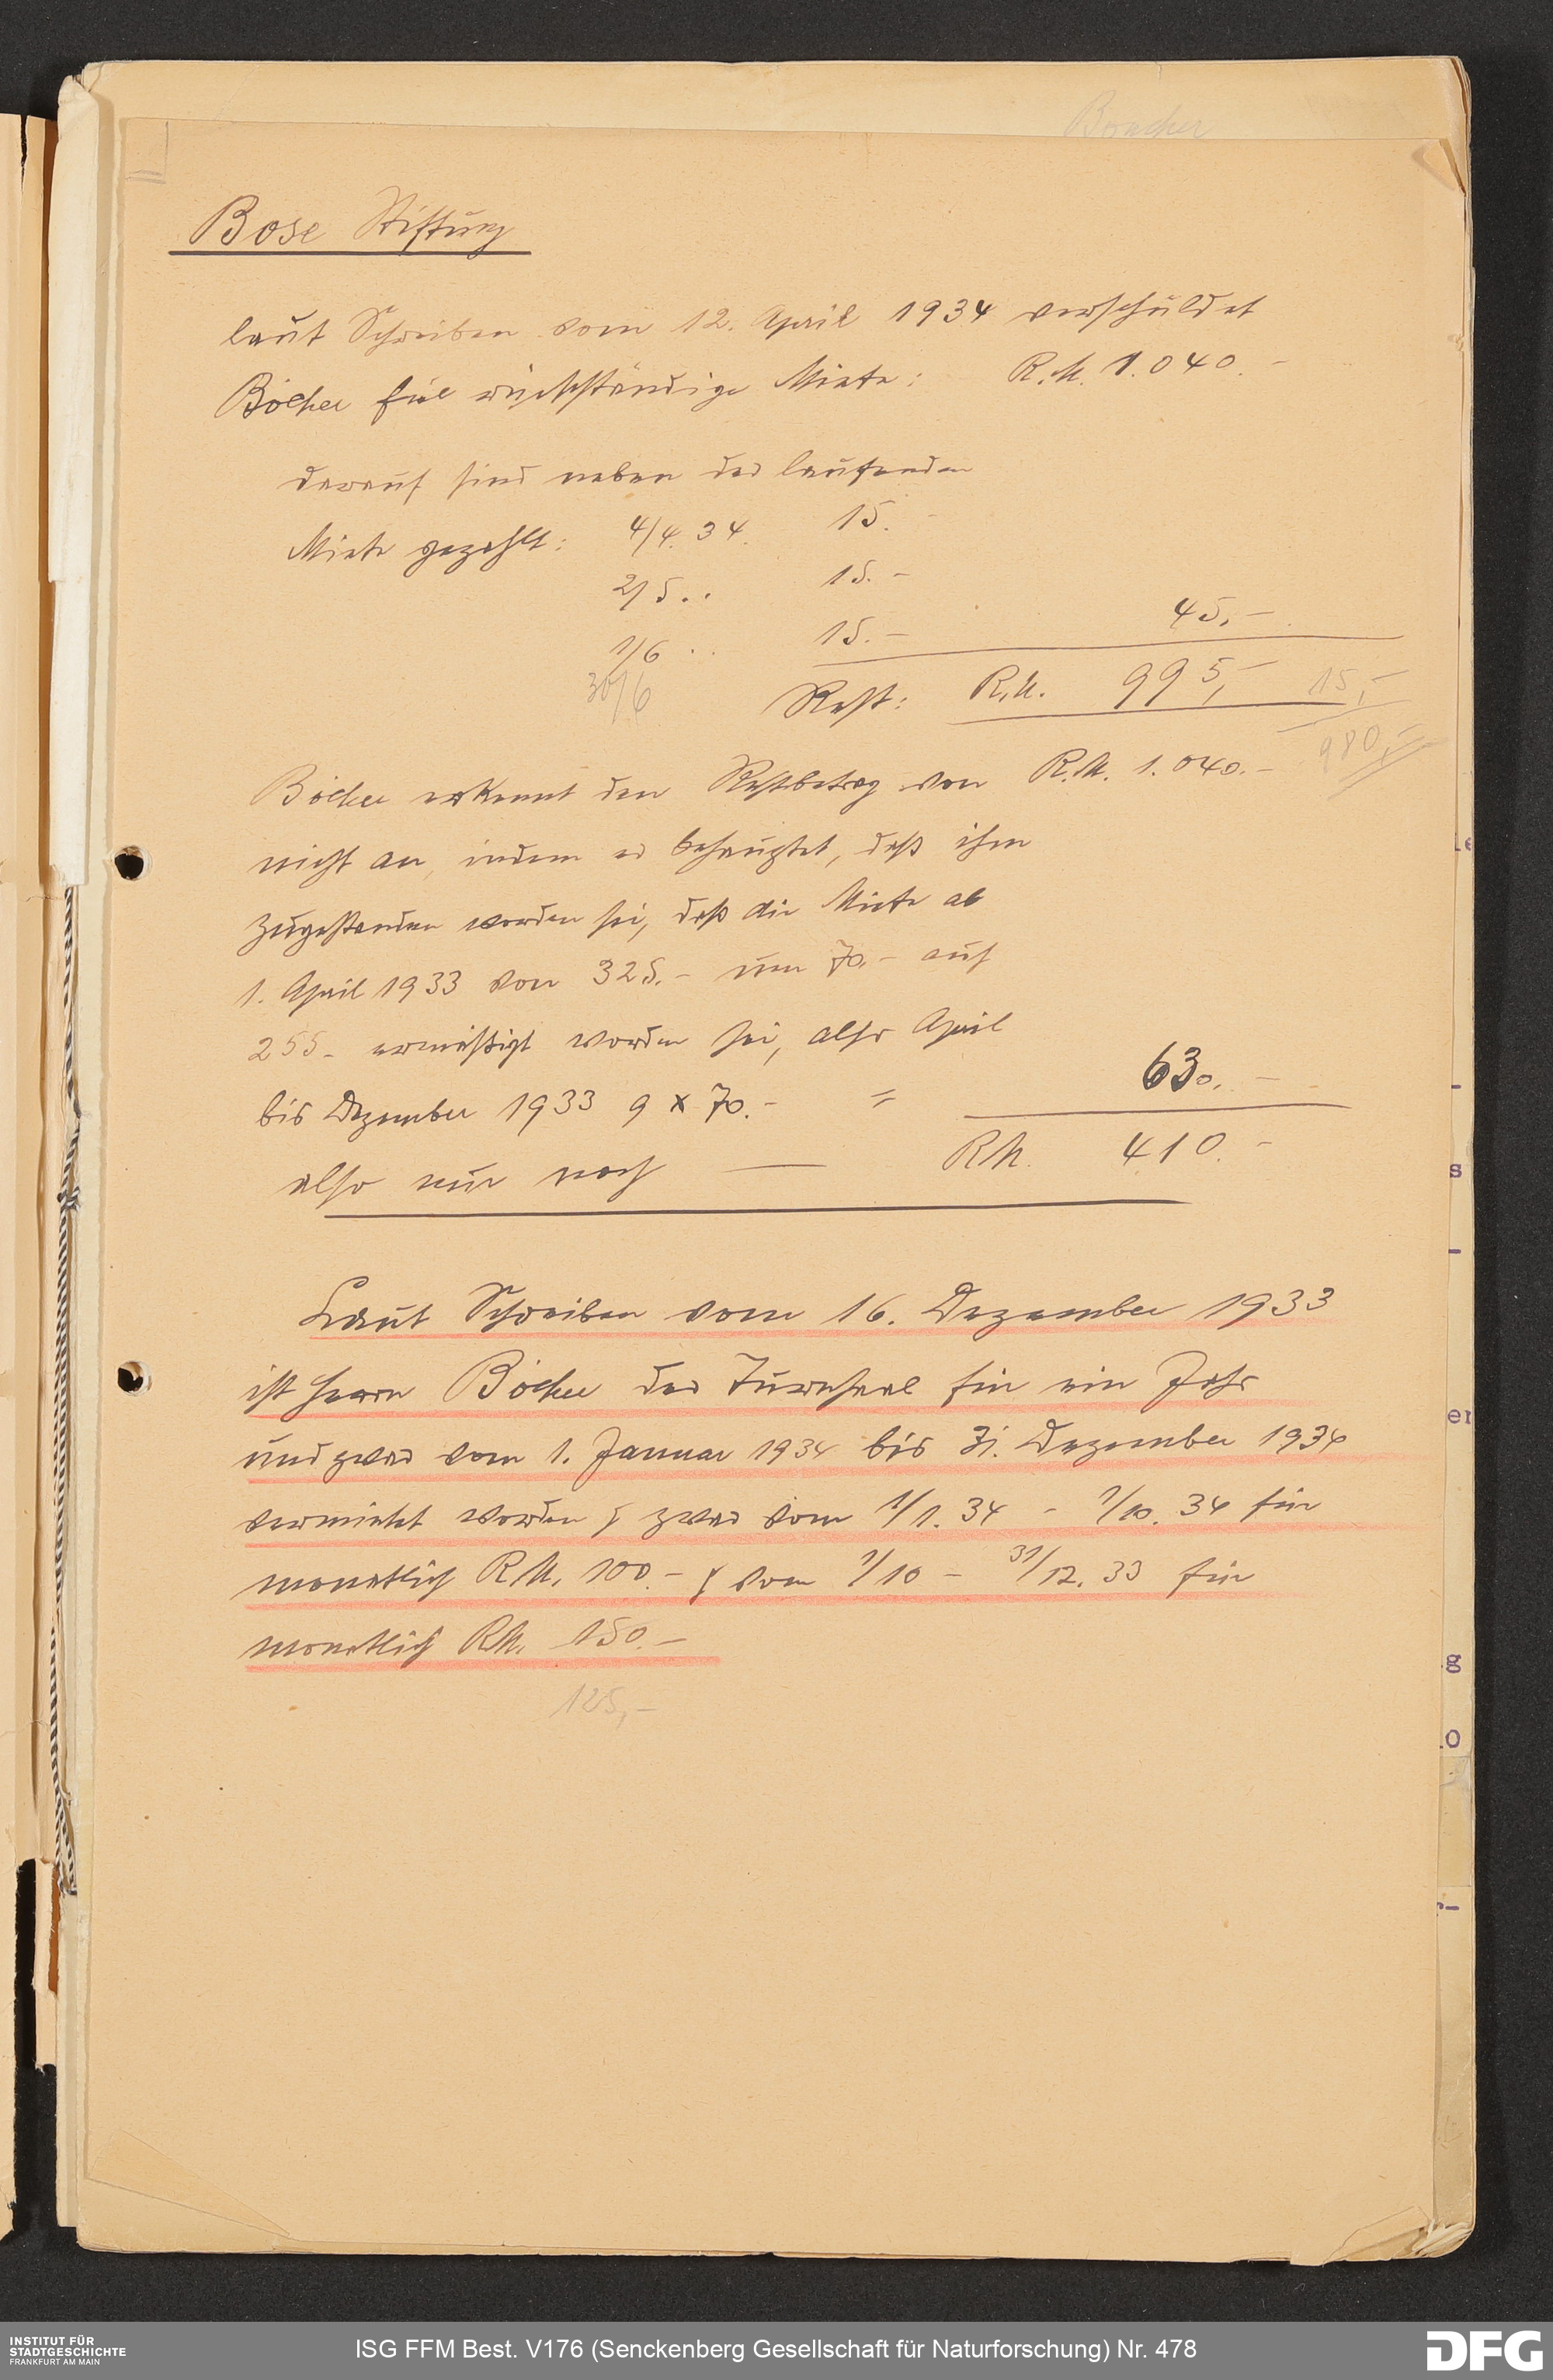 Boucher
Bose Stiftung
laut Schreiben vom 12. April 1934 verschuldet
Böcher für rückständige Miete: R.M. 1.040.-
darauf sind neben der laufenden
Miete gezahlt: 4/4. 34. 15.-
2/5 . . 15.-
1/6 . . 15.- 45,-
30/6 Rest: R.M. 995,- 15,-
980,-
Böcher erkennt den Restbetrag von R.M. 1.040.-
nicht an, indem er behauptet, daß ihm
zugestanden worden sei, daß die Miete ab
1. April 1933 von 325.- um 70.- auf
255.- ermäßigt worden sei, also April
bis Dezember 1933 9 x 70.- = 630.-
also nur noch — RM. 410.-
Laut Schreiben vom 16. Dezember 1933
ist Herrn Böcher der Turnsaal für ein Jahr
und zwar vom 1. Januar 1934 bis 31. Dezember 1934
vermietet worden & zwar vom 1/1. 34 - 1/10. 34 für
monatlich RM. 100.- & vom 1/10 - 31/12. 33 für
monatlich RM. 150.-
125,-
INSTITUT FÜR
STADTGESCHICHTE
FRANKFURT AM MAIN
ISG FFM Best. V176 (Senckenberg Gesellschaft für Naturforschung) Nr. 478
DFG